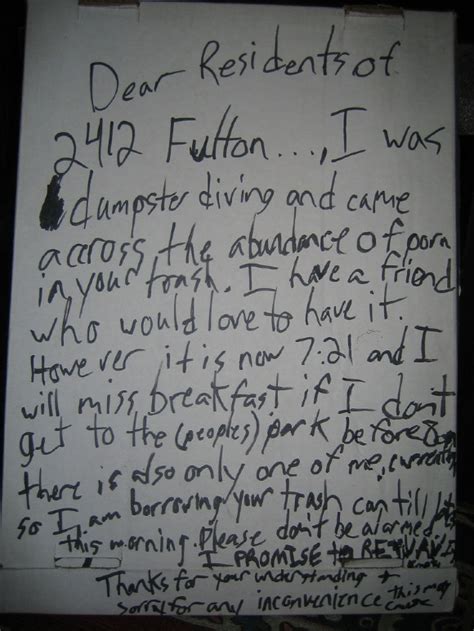 Dear Residents of
2412 Fulton...., I was
dumpster diving and came
accross the abundance of porn
in your trash. I have a friend
who would love to have it.
However it is now 7:21 and I
will miss breakfast if I don't
get to the (peoples) park before 8am
there is also only one of me, currently
so I, am borrowing your trash can till later
this morning. Please don't be alarmed,
I PROMISE to RETURN it
Thanks for your understanding +
sorry for any inconvenience this may
cause